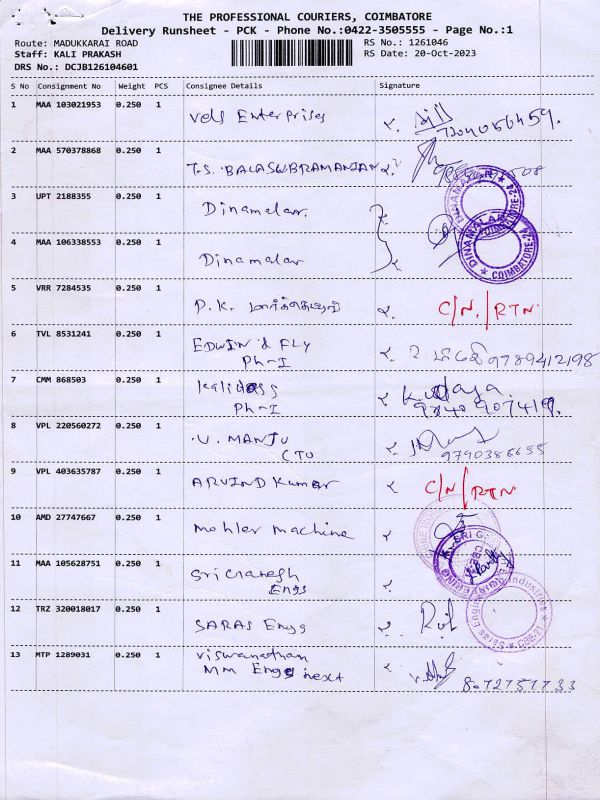 THE PROFESSIONAL COURIERS, COIMBATORE
Delivery Runsheet - PCK - Phone No.:0422-3505555 - Page No.:1
Route: MADUKKARAI ROAD
RS No.: 1261046
Staff: KALI PRAKASH
RS Date: 20-Oct-2023
DRS No.: DCJB126104601
S No Consignment No Weight PCS Consignee Details Signature
1 MAA 103021953 0.250 1 Vels Enterprises
2 MAA 570378868 0.250 1 T.S. BALASUBRAMANIAN
3 UPT 2188355 0.250 1 Dinamalar
DINAMALAR COIMBATORE-24
4 MAA 106338553 0.250 1 Dinamalar
DINAMALAR COIMBATORE-24
5 VRR 7284535 0.250 1 P.K. C/N/RTN
6 TVL 8531241 0.250 1 EDWIN d FLY 9789412198
Ph-I
7 CMM 868503 0.250 1 kalidass K. udaya
Ph-I 9840907419.
8 VPL 220560272 0.250 1 V. MANJU
CTO 9790386655
9 VPL 403635787 0.250 1 ARVIND Kumar C/N/RTN
10 AMD 27747667 0.250 1 Mohler machine
11 MAA 105628751 0.250 1 Sri Ganesh
Engs
12 TRZ 320018017 0.250 1 SARAS Engs
Saras Engineering Industries CBE-21
13 MTP 1289031 0.250 1 Viswanathan
MM Engg next